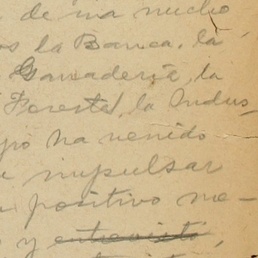 de una mucho
os la Banca, la
Ganaderia, la
Foresta, la Indus
ha venido
impulsar
positivo me-
y entrevista,